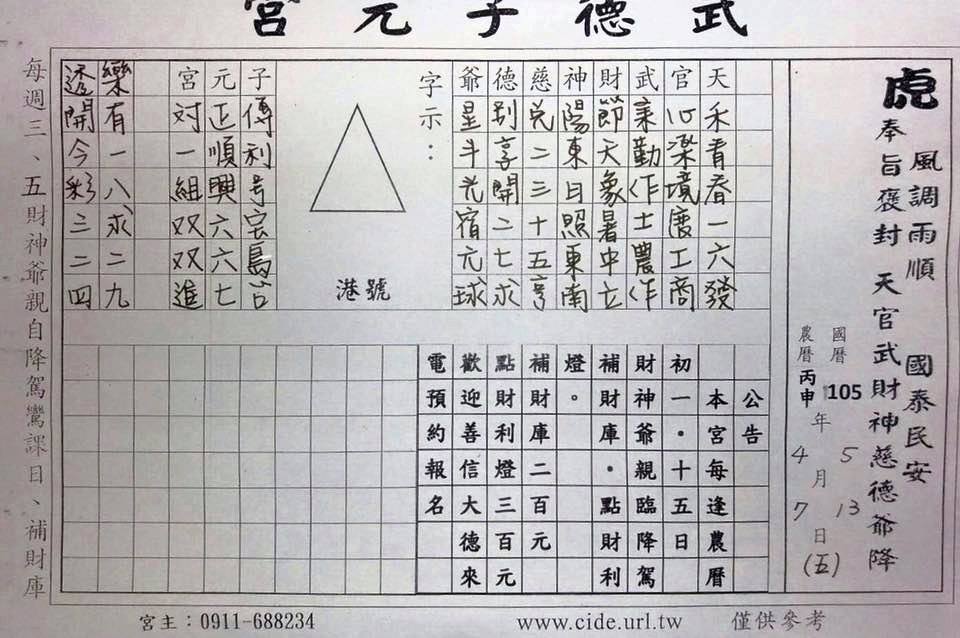 武德子元宮
虎
風調雨順 國泰民安
奉旨褒封 天官武財神慈德爺降
國曆 105 年 5 月 13 日 (五)
農曆 丙申 4 7
天禾青春一六發
官心潔境度工商
武秉勤作士農作
財節天象暑中立
神陽東日照東南
慈兌二三十五亨
德别享開二七求
爺星斗光宿元球
字示：
港號
子傳利号宝島
元正順興六六七
宮対一組双双進
樂有一八求二九
透開今彩三二四
公告
本宮每逢農曆
初一．十五日
財神爺親臨降駕
補財庫．點財利
燈。
補財庫二百元
點財利燈三百元
歡迎善信大德來
電預約報名
每週三、五財神爺親自降駕鸞課日、補財庫
宮主：0911-688234
www.cide.url.tw
僅供參考